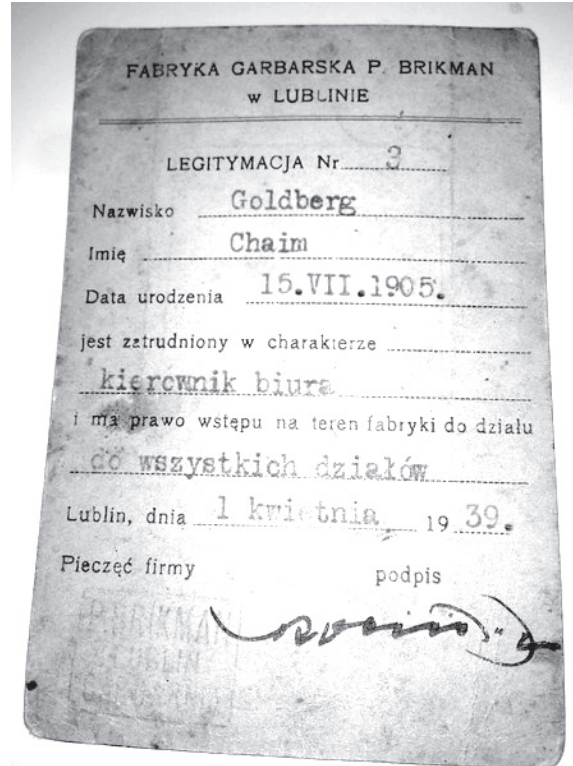 FABRYKA GARBARSKA P. BRIKMAN
w LUBLINIE
LEGITYMACJA Nr 3
Nazwisko Goldberg
Imię Chaim
Data urodzenia 15.VII.1905.
jest zatrudniony w charakterze
kierownik biura
i ma prawo wstępu na teren fabryki do działu
do wszystkich działów
Lublin, dnia 1 kwietnia 19 39.
Pieczęć firmy podpis
P. BRIKMAN
LUBLIN